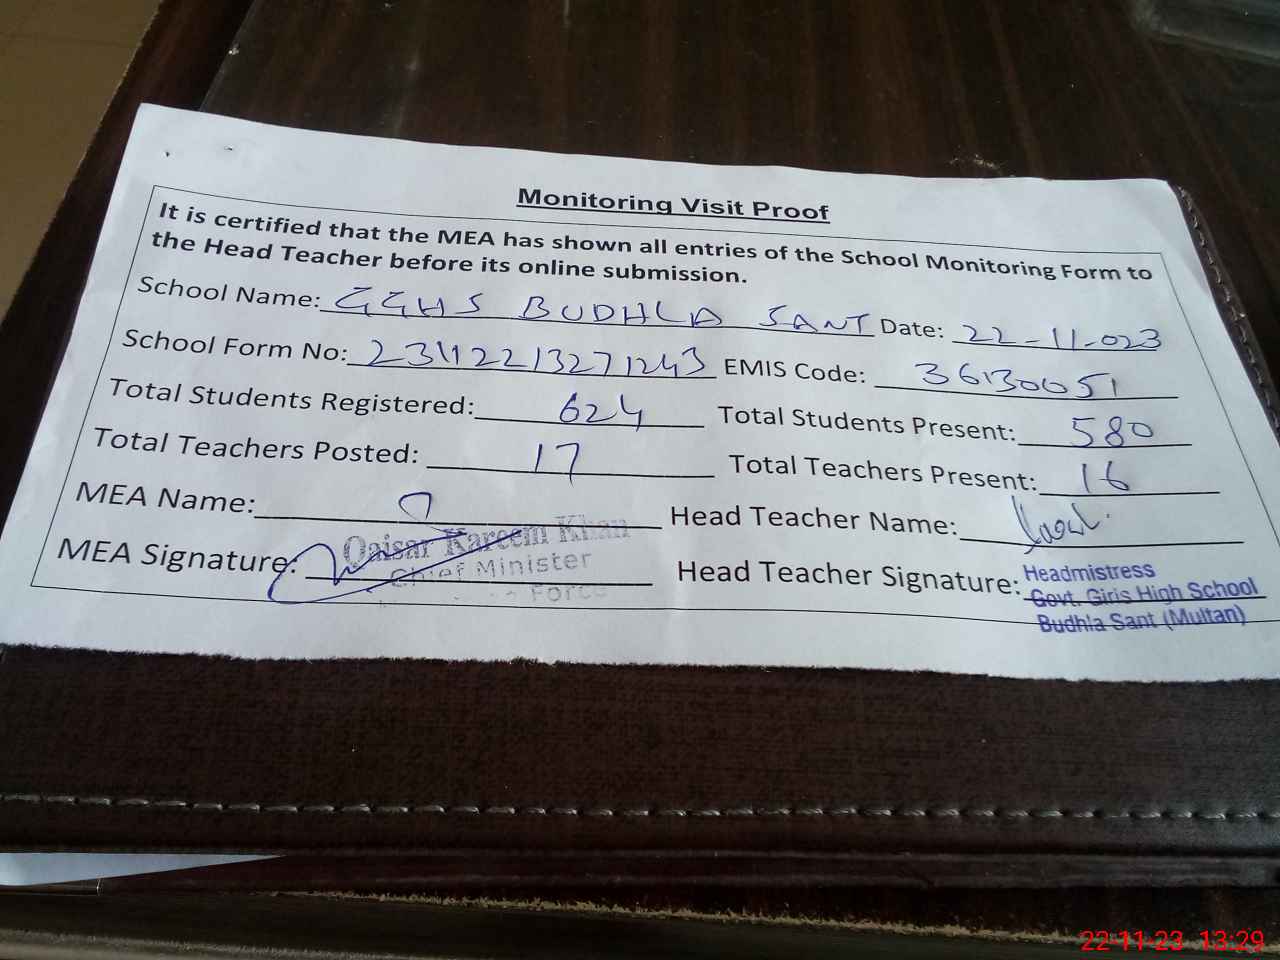 Monitoring Visit Proof
It is certified that the MEA has shown all entries of the School Monitoring Form to
the Head Teacher before its online submission.
School Name: GGHS BUDHLA SANT Date: 22-11-023
School Form No: 23112213271243 EMIS Code: 36130051
Total Students Registered: 624 Total Students Present: 580
Total Teachers Posted: 17 Total Teachers Present: 16
MEA Name: Head Teacher Name:
MEA Signature: Head Teacher Signature:
Qaisar Kareem Khan
Chief Minister
Force
Headmistress
Govt. Girls High School
Budhla Sant (Multan)
22-11-23 13:29